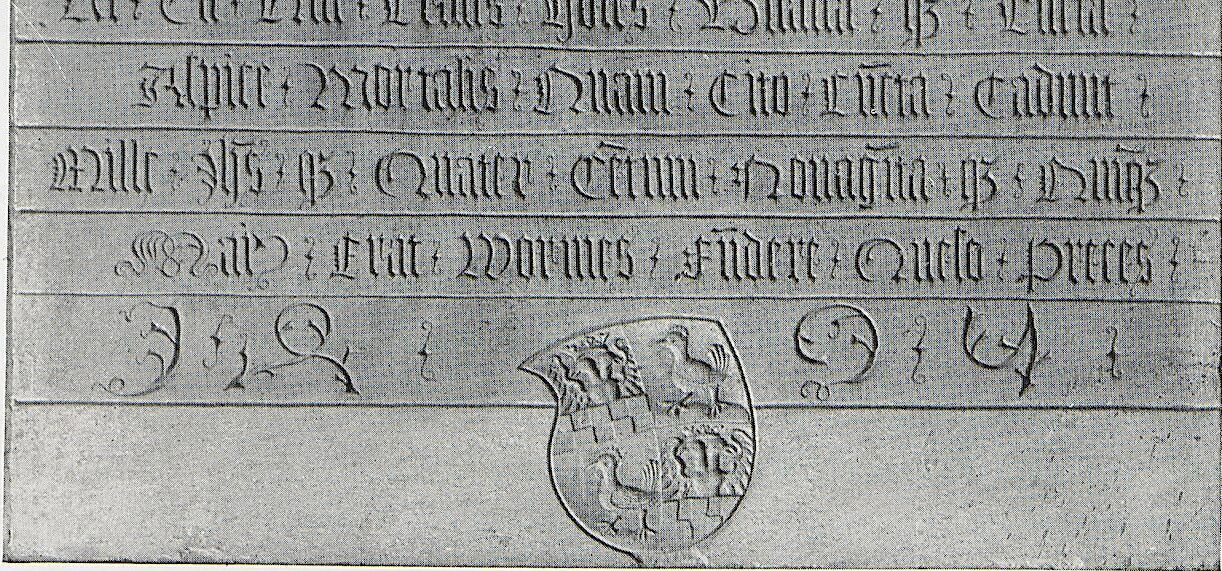 Aspice Mortalis Quam Cito Cūcta Cadunt
Mille Ihs̄ qꝫ Quater Cētum Nonagīta qꝫ Quīqꝫ
Maij Erat Wormes Fūdere Queso Preces
1 4 9 5